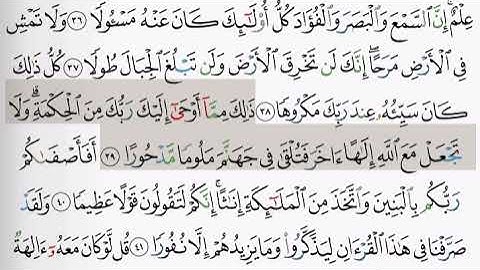 عِلْمٌ ۚ إِنَّ ٱلسَّمْعَ وَٱلْبَصَرَ وَٱلْفُؤَادَ كُلُّ أُو۟لَـٰٓئِكَ كَانَ عَنْهُ مَسْـُٔولًا ٣٦ وَلَا تَمْشِ
فِى ٱلْأَرْضِ مَرَحًا ۖ إِنَّكَ لَن تَخْرِقَ ٱلْأَرْضَ وَلَن تَبْلُغَ ٱلْجِبَالَ طُولًا ٣٧ كُلُّ ذَٰلِكَ
كَانَ سَيِّئُهُۥ عِندَ رَبِّكَ مَكْرُوهًا ٣٨ ذَٰلِكَ مِمَّآ أَوْحَىٰٓ إِلَيْكَ رَبُّكَ مِنَ ٱلْحِكْمَةِ ۗ وَلَا
تَجْعَلْ مَعَ ٱللَّهِ إِلَـٰهًا ءَاخَرَ فَتُلْقَىٰ فِى جَهَنَّمَ مَلُومًا مَّدْحُورًا ٣٩ أَفَأَصْفَىٰكُمْ
رَبُّكُم بِٱلْبَنِينَ وَٱتَّخَذَ مِنَ ٱلْمَلَـٰٓئِكَةِ إِنَـٰثًا ۚ إِنَّكُمْ لَتَقُولُونَ قَوْلًا عَظِيمًا ٤٠ وَلَقَدْ
صَرَّفْنَا فِى هَـٰذَا ٱلْقُرْءَانِ لِيَذَّكَّرُوا۟ وَمَا يَزِيدُهُمْ إِلَّا نُفُورًا ٤١ قُل لَّوْ كَانَ مَعَهُۥٓ ءَالِهَةٌ